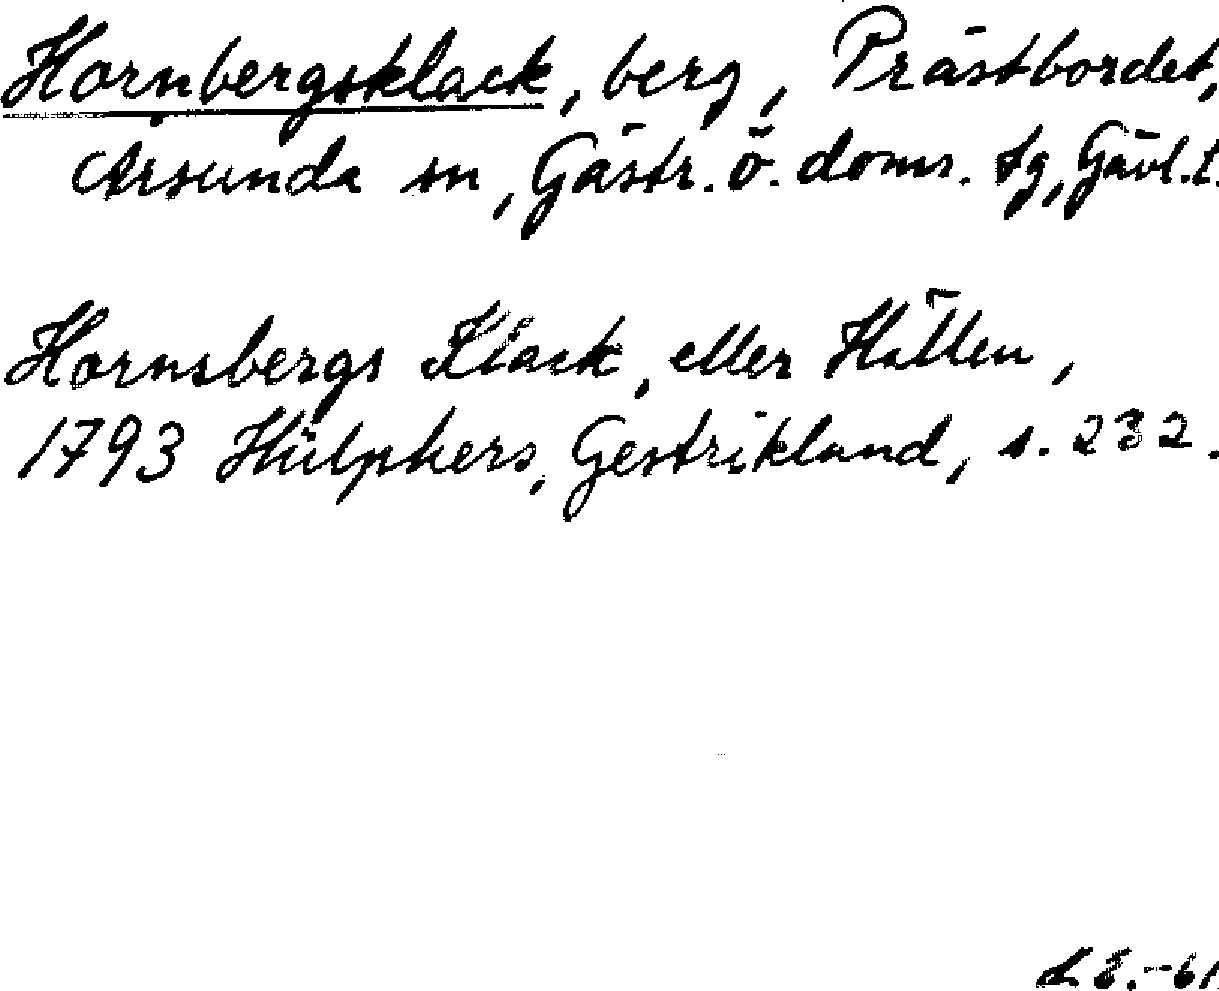 Hornbergsklack, berg, Prästbordet,
Årsunda sn, Gästr. ö. doms. tg, Gävl. l.
Hornsbergs Klack, eller Hällen,
1793 Hülphers, Gestrikland, s. 232.
L E.-61